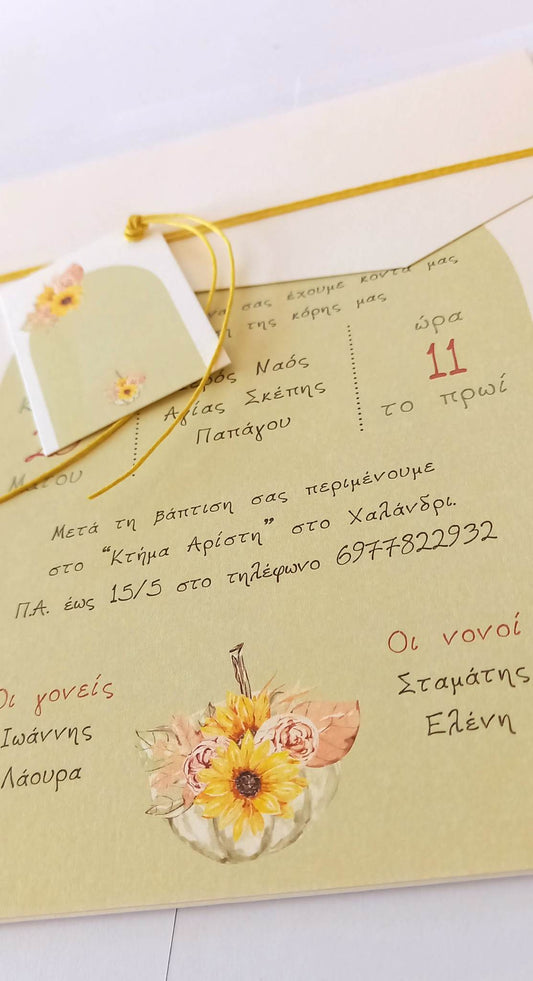 να σας έχουμε κοντά μας
της κόρης μας
Ναός
Αγίας Σκέπης
Παπάγου
ώρα
11
το πρωί
Μαΐου
Μετά τη βάπτιση σας περιμένουμε
στο “Κτήμα Αρίστη” στο Χαλάνδρι.
Π.Α. έως 15/5 στο τηλέφωνο 6977822932
Οι γονείς
Ιωάννης
Λάουρα
Οι νονοί
Σταμάτης
Ελένη